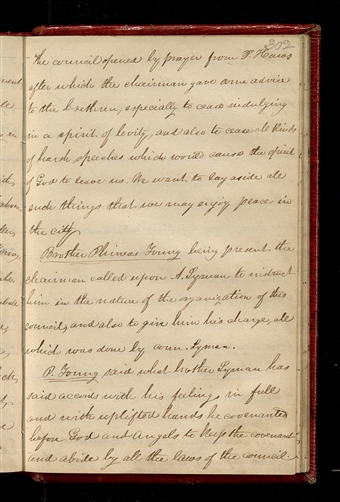 302
The council opened by prayer from P. Haws
after which the chairman gave some advice
to the brethren, especially to cease indulging
in a spirit of levity, and also to cease all kinds
of harsh speeches which would cause the spirit
of God to leave us. We want to lay aside all
such things that we may enjoy peace in
the city.
Brother Phineas Young being present the
chairman called upon A. Lyman to instruct
him in the nature of the organization of this
council, and also to give him his charge, all
which was done by coun. Lyman.
P. Young said what brother Lyman has
said accords with his feelings in full
and with uplifted hands he covenanted
before God and Angels to keep the covenant
and abide by all the laws of the council